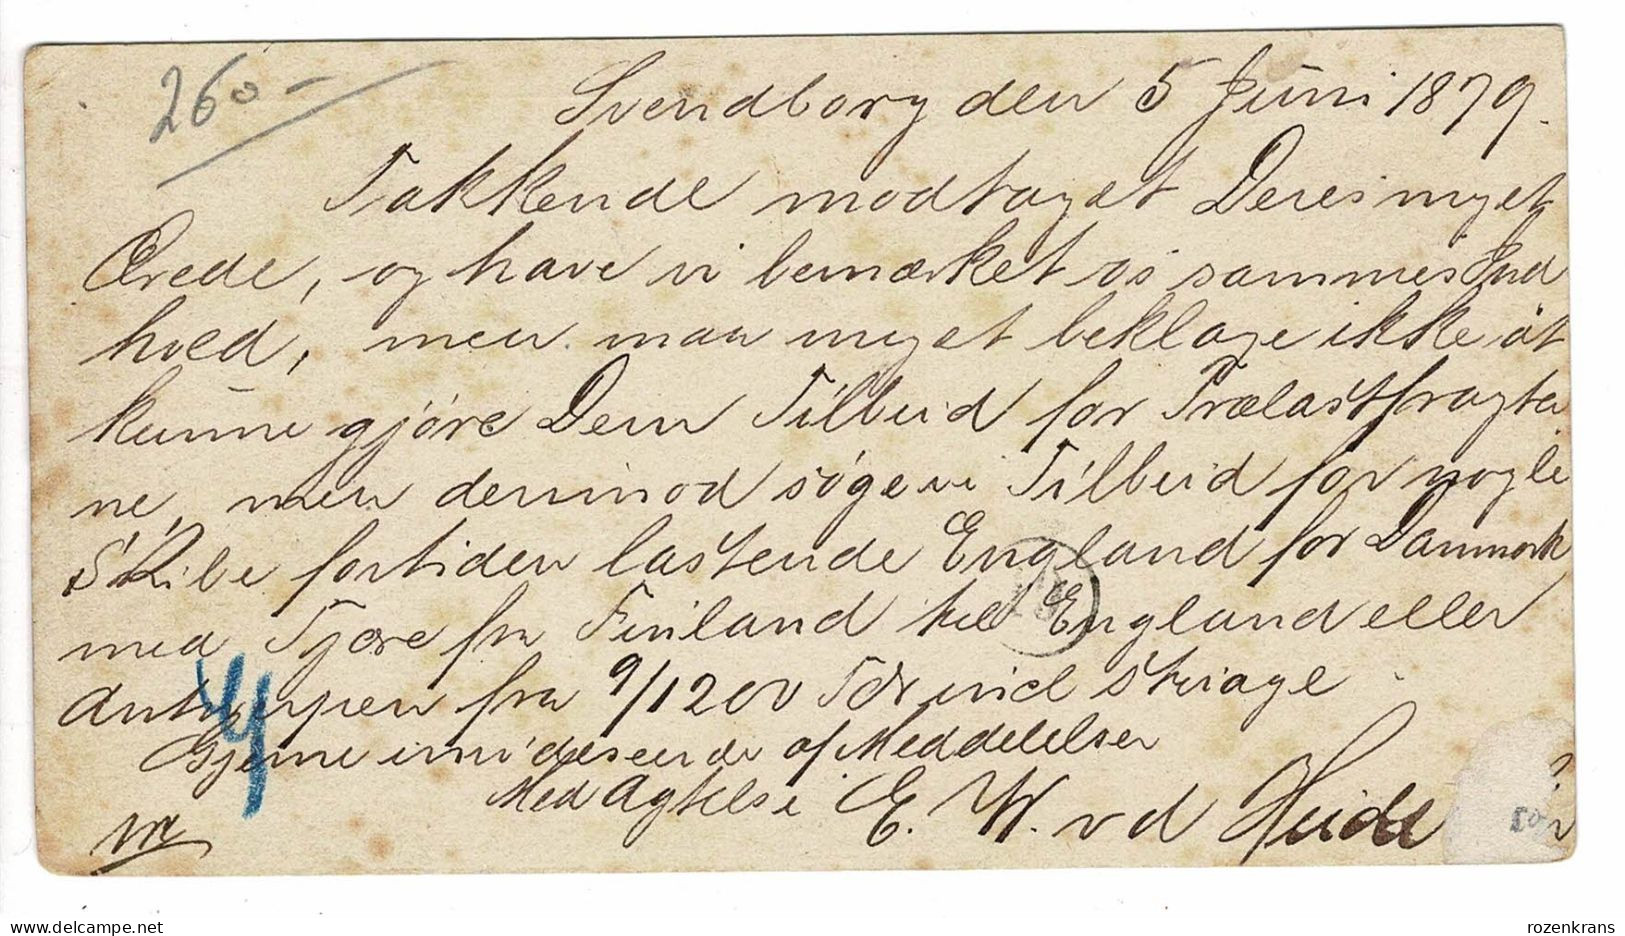 260-
Svendborg den 5 Juni 1879.
Takkende modtaget Deres meget
Ærede, og have vi bemærket os sammes Ind
hold, men maa meget beklage ikke at
kunne gjöre Dem Tilbud for Trælastfragter
ne, men derimod søge vi Tilbud for nogle
Skibe fortiden lastende England for Danmark
med Tjære fra Finland til England eller
Antwerpen fra 9/1200 Tdr
Gjerne imødeseende af Meddelelser
Med Agtelse E. W. v d Heide
rozenkrans
delcampe.net